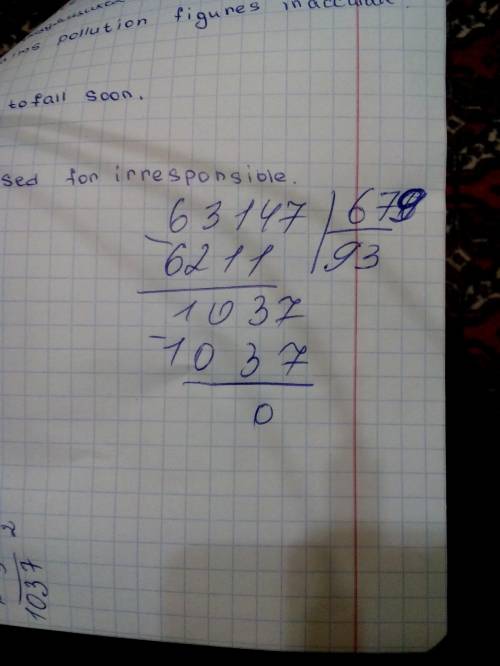 pollution figures
to fall soon.
sed for irresponsible.
63147 | 679
- 6211 | 93
1037
- 1037
0
2
1037